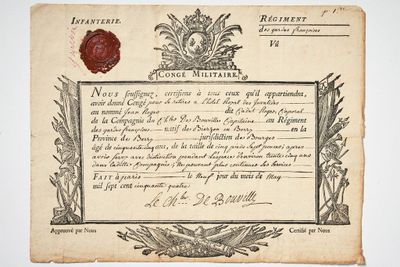 INFANTERIE.
RÉGIMENT
des gardes françoises
Vû
CONGÉ MILITAIRE.
NOUS soussignez, certifions à tous ceux qu'il appartiendra,
avoir donné Congé pour se retirer a l'hôtel Royal des Invalides
au nommé Jean Roger dit Cadet Roger, Caporal
de la Compagnie de Ch.er De Bouville Capitaine en Régiment
des gardes françoises natif de Vierzon en Berry en la
Province de Berry jurisdiction de Bourges
âgé de cinquante cinq ans, de la taille de cinq pieds pouces, apres
avoir servi avec distinction pendant l'espace d'environ trente cinq ans
dans laditte Compagnie, Ne pouvant plus continuer les services
FAIT à paris le Neuf jour du mois de May
mil sept cent cinquante quatre
Le Ch.er De Bouville
Approuvé par Nous
Certifié par Nous